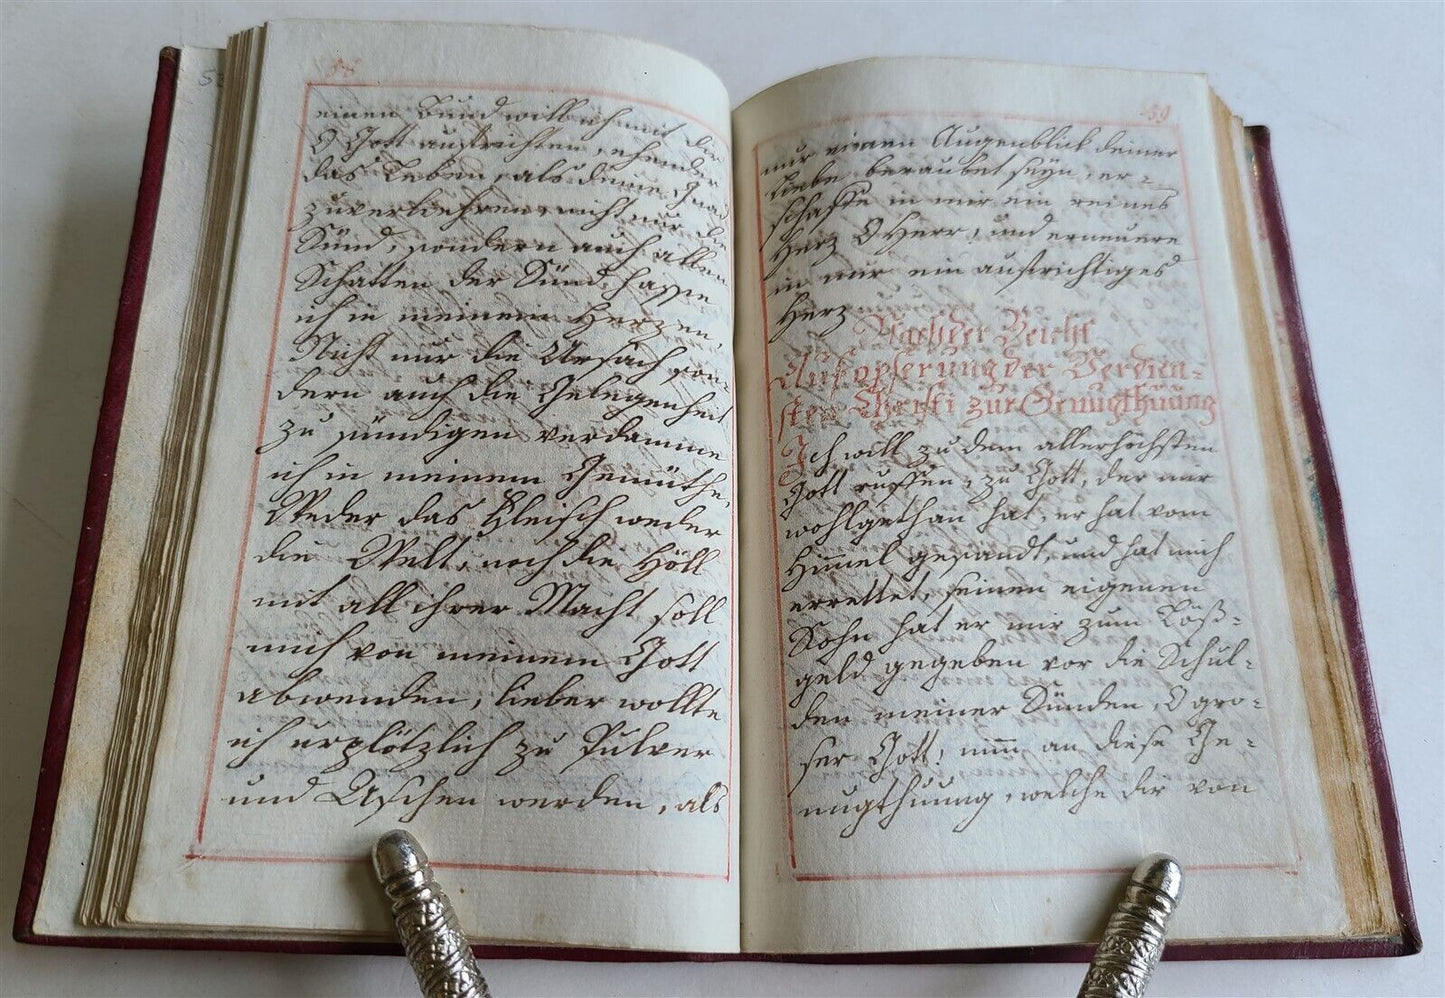 58
einen Bund will ich mit dir
O Gott aufrichten, ehender
das Leben, als deine Gnad
zuverliehren, nicht nur die
Sünd, sondern auch allen
Schatten der Sünd hasse
ich in meinem Herzen,
Nicht nur die Ursach son-
dern auch die Gelegenheit
zu sündigen verdamme
ich in meinem Gemüthe,
Weder das Fleisch weder
die Welt, noch die Höll
mit all ihrer Macht soll
mich von meinem Gott
abwenden, lieber wollte
ich urplötzlich zu Pulver
und Aschen werden, als
59
nur einen Augenblick deiner
Liebe beraubet seyn, er-
schaffe in mir ein reines
Herz O Herr, und erneuere
in mir ein aufrichtiges
Herz
Nach der Beicht
Aufopferung der Verdien-
sten Christi zur Genugthuung
Ich will zu dem allerhöchsten
Gott ruffen, zu Gott, der mir
wohlgethan hat, er hat vom
Himel gesandt, und hat mich
errettet, seinen eigenen
Sohn hat er mir zum Löß-
geld gegeben vor die Schul-
den meiner Sünden, O gro-
ser Gott, nim an diese Ge-
nugthuung, welche dir von